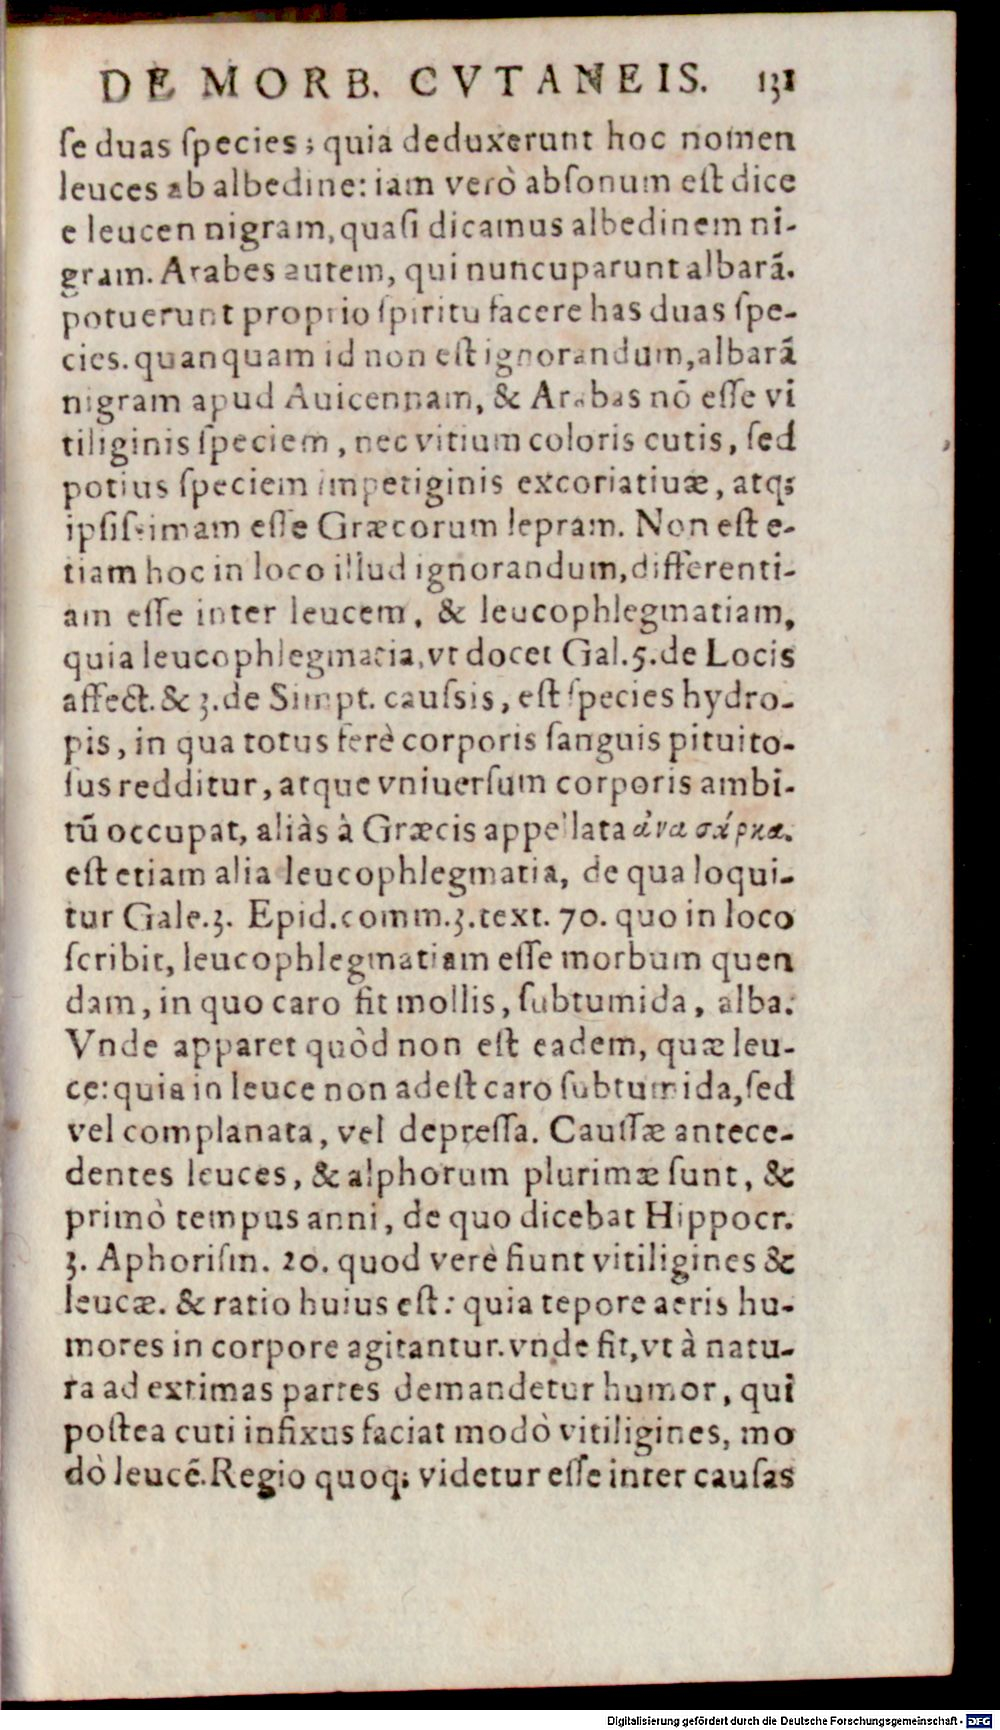 DE MORB. CVTANEIS. 131
ſe duas ſpecies; quia deduxerunt hoc nomen
leuces ab albedine: iam verò abſonum eſt dice
e leucen nigram, quaſi dicamus albedinem ni-
gram. Arabes autem, qui nuncuparunt albarã.
potuerunt proprio ſpiritu facere has duas ſpe-
cies. quanquam id non eſt ignorandum, albarã
nigram apud Auicennam, & Arabas nõ eſſe vi
tiliginis ſpeciem, nec vitium coloris cutis, ſed
potius ſpeciem impetiginis excoriatiuæ, atq;
ipſiſsimam eſſe Græcorum lepram. Non eſt e-
tiam hoc in loco illud ignorandum, differenti-
am eſſe inter leucem, & leucophlegmatiam,
quia leucophlegmatia, vt docet Gal. 5. de Locis
affect. & 3. de Simpt. cauſsis, eſt ſpecies hydro-
pis, in qua totus ferè corporis ſanguis pituito-
ſus redditur, atque vniuerſum corporis ambi-
tũ occupat, aliàs à Græcis appellata ἀνα σάρκα.
eſt etiam alia leucophlegmatia, de qua loqui-
tur Gale. 3. Epid. comm. 3. text. 70. quo in loco
ſcribit, leucophlegmatiam eſſe morbum quen
dam, in quo caro fit mollis, ſubtumida, alba.
Vnde apparet quòd non eſt eadem, quæ leu-
ce: quia in leuce non adeſt caro ſubtumida, ſed
vel complanata, vel depreſſa. Cauſſæ antece-
dentes leuces, & alphorum plurimæ ſunt, &
primò tempus anni, de quo dicebat Hippocr.
3. Aphoriſm. 20. quod verè fiunt vitiligines &
leucæ. & ratio huius eſt: quia tepore aeris hu-
mores in corpore agitantur. vnde fit, vt à natu-
ra ad extimas partes demandetur humor, qui
poſtea cuti infixus faciat modò vitiligines, mo
dò leucẽ. Regio quoq; videtur eſſe inter cauſas
Digitalisierung gefördert durch die Deutsche Forschungsgemeinschaft - DFG